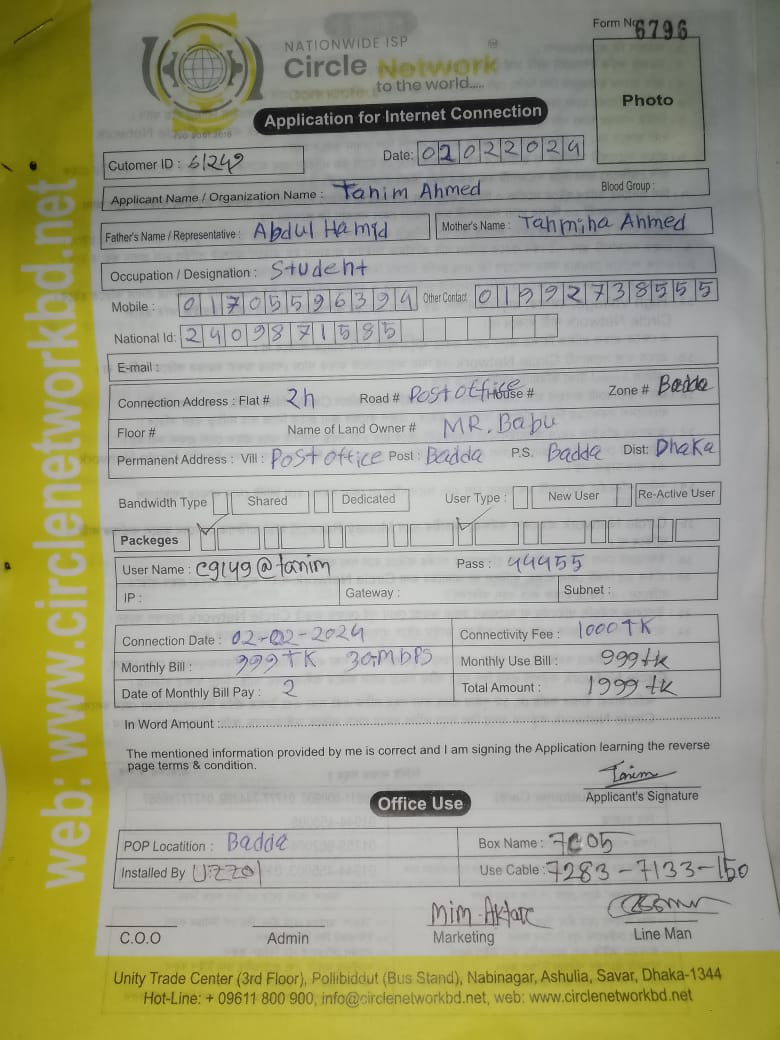 Form No 6796
NATIONWIDE ISP
Circle Network
to the world.....
Photo
Application for Internet Connection
Cutomer ID : 61249
Date: 02022024
Applicant Name / Organization Name : Tanim Ahmed Blood Group :
Father's Name / Representative : Abdul Hamid Mother's Name : Tahmiha Ahmed
Occupation / Designation : Student
Mobile : 01705596394 Other Contact 01992738555
National Id: 2409871585
E-mail :
Connection Address : Flat # 2h Road # Post office House # Zone # Badda
Floor # Name of Land Owner # MR. Babu
Permanent Address : Vill : Post office Post : Badda P.S. Badda Dist: Dhaka
Bandwidth Type Shared Dedicated User Type : New User Re-Active User
Packeges
User Name : cg149@tanim Pass : 44455
IP : Gateway : Subnet :
Connection Date : 02-02-2024 Connectivity Fee : 1000 TK
Monthly Bill : 999 TK 30-Mbps Monthly Use Bill : 999 tk
Date of Monthly Bill Pay : 2 Total Amount : 1999 tk
In Word Amount :
The mentioned information provided by me is correct and I am signing the Application learning the reverse
page terms & condition.
Tanim
Applicant's Signature
Office Use
POP Locatition : Badda Box Name : 7C05
Installed By Uzzol Use Cable : 7283-7133-150
Mim Aktar
C.O.O Admin Marketing Line Man
Unity Trade Center (3rd Floor), Pollibiddut (Bus Stand), Nabinagar, Ashulia, Savar, Dhaka-1344
Hot-Line: + 09611 800 900, info@circlenetworkbd.net, web: www.circlenetworkbd.net
web: www.circlenetworkbd.net